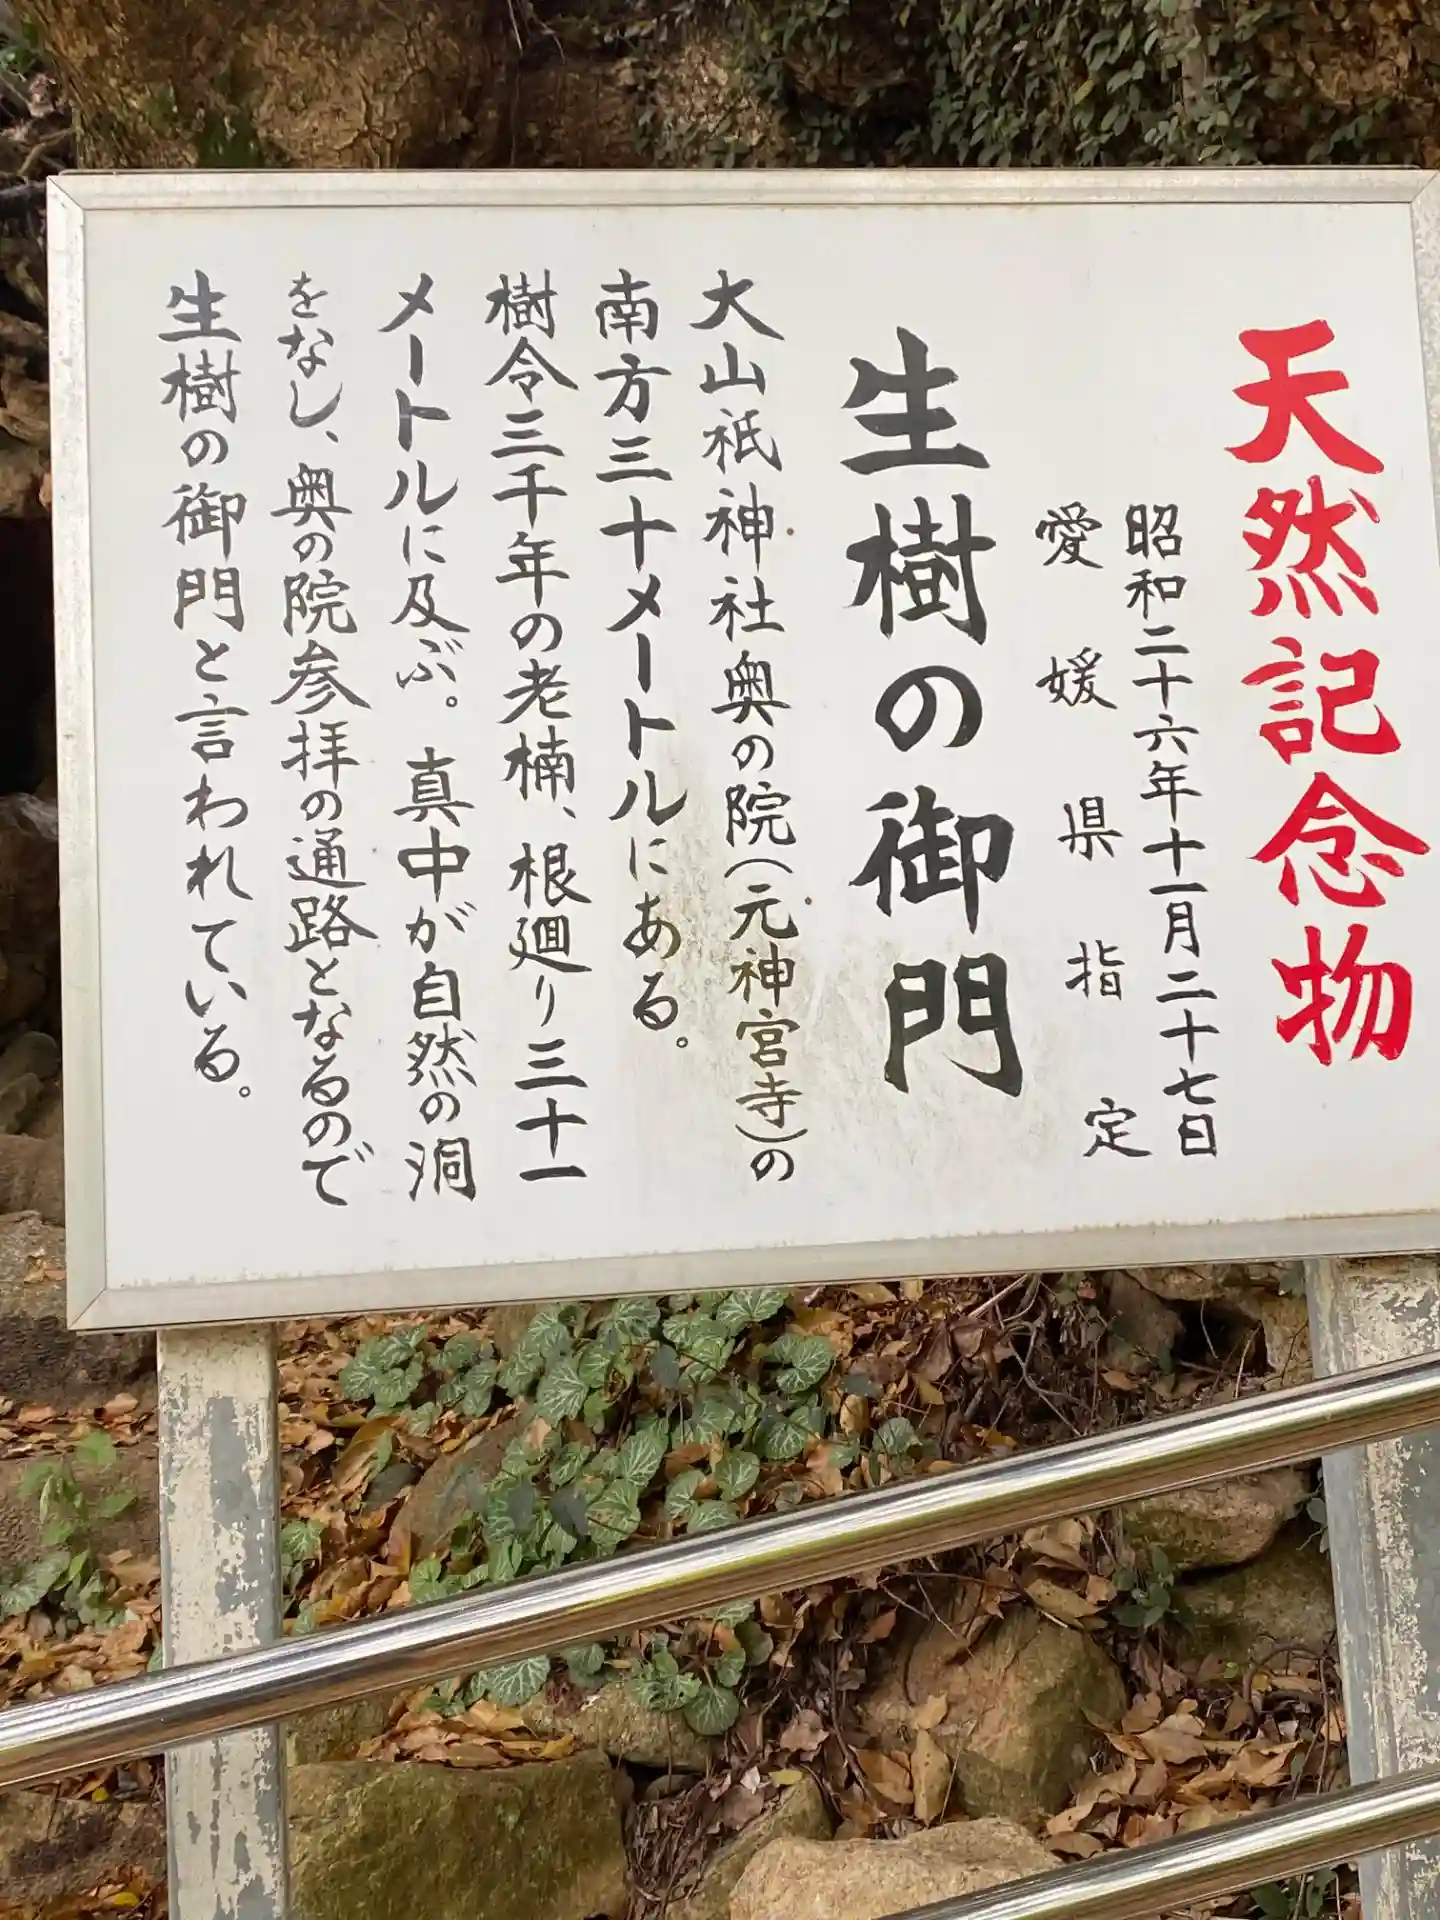 天然記念物
昭和二十六年十一月二十七日
愛媛県指定
生樹の御門
大山祇神社奥の院(元神宮寺)の
南方三十メートルにある。
樹令三千年の老楠、根廻り三十一
メートルに及ぶ。真中が自然の洞
をなし、奥の院参拝の通路となるので
生樹の御門と言われている。